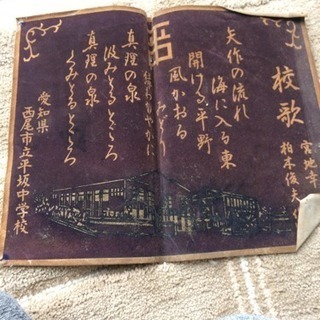 校歌
宝地寺
柏木俊夫
矢作の流れ
海に入る東
開ける平野
風かおる
みどり
やかに
真理の泉
汲みてるところ
真理の泉
くみてるところ
愛知県
西尾市立平坂中学校